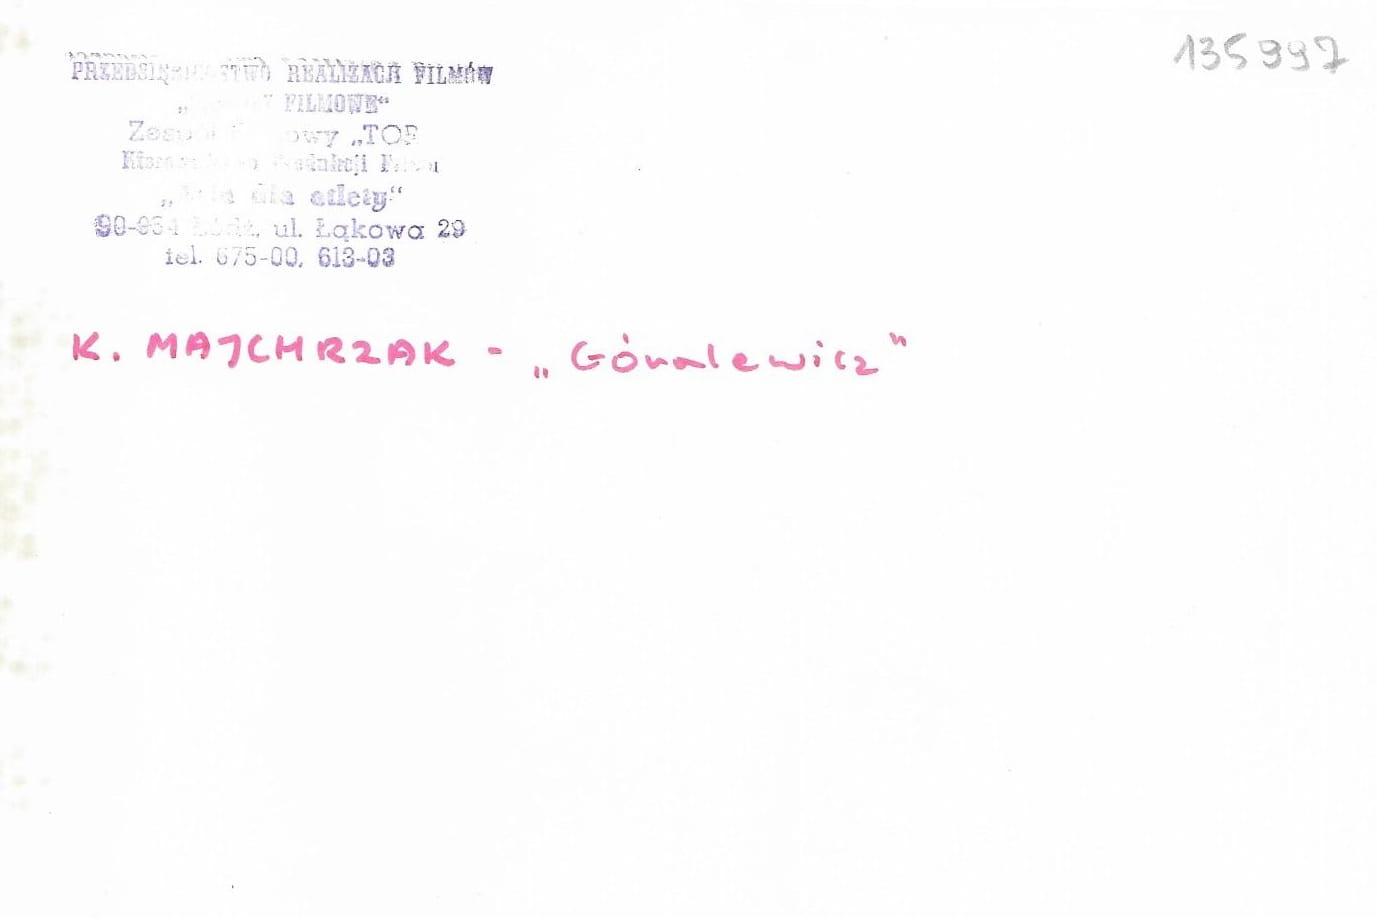 135997
PRZEDSIĘBIORSTWO REALIZACJI FILMÓW
FILMOWE"
Zespół Filmowy „TOR
Kierownictwo Produkcji Filmu
„Aria dla atlety"
90-954 Łódź, ul. Łąkowa 29
tel. 675-00, 613-03
K. MAJCHRZAK - „Góralewicz"